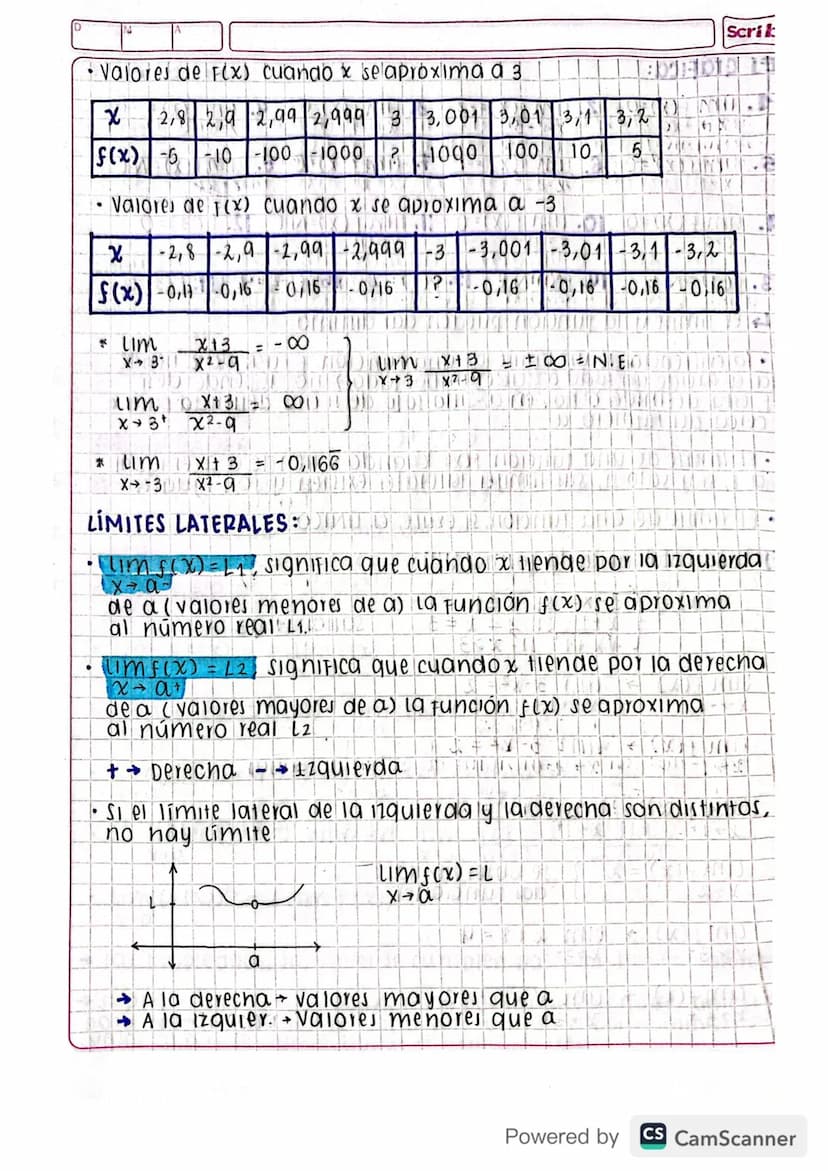 D N A
Scri
• Valores de f(x) cuando x se aproxima a 3
x 2,8 2,9 2,99 2,999 3 3,001 3,01 3,1 3,2
f(x) -5 -10 -100 -1000 ? 1000 100 10 5
• Valores de f(x) cuando x se aproxima a -3
x -2,8 -2,9 -2,99 -2,999 -3 -3,001 -3,01 -3,1 -3,2
f(x) -0,17 -0,16 -0,16 -0,16 ? -0,16 -0,16 -0,16 -0,16
* lim x+3 = -∞
x→3⁻ x²-9
lim x+3 = ± ∞ = N.E
x→3 x²-9
lim x+3 = ∞
x→3⁺ x²-9
* lim x+3 = -0,166̅
x→-3 x²-9
LÍMITES LATERALES:
• lim f(x) = L1, significa que cuando x tiende por la izquierda
x→a⁻
de a (valores menores de a) la función f(x) se aproxima
al número real L1.
• lim f(x) = L2, significa que cuando x tiende por la derecha
x→a⁺
de a (valores mayores de a) la función f(x) se aproxima
al número real L2
+ → Derecha - → Izquierda
• Si el límite lateral de la izquierda y la derecha son distintos,
no hay límite
lim f(x) = L
x→a
L
a
→ A la derecha → valores mayores que a
→ A la izquier. → valores menores que a
Powered by CS CamScanner